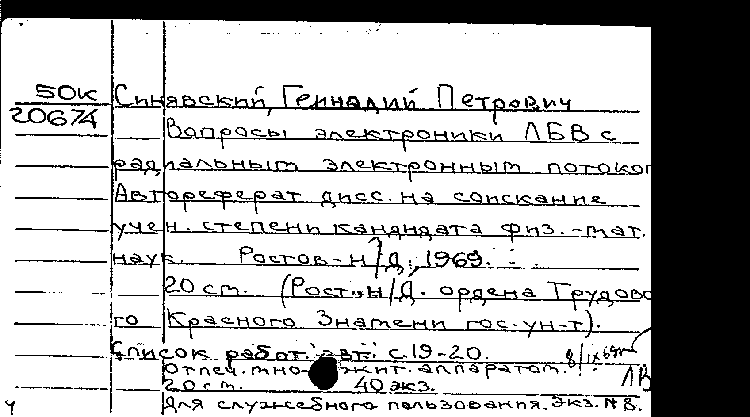 50к Синявский, Геннадий Петрович
20674
Вопросы электроники ЛБВ с
радиальным электронным потоко
Автореферат дисс. на соискание
учен. степени кандидата физ.-мат.
наук Ростов-н/Д, 1969.
20 см. (Рост.-н/Д. ордена Трудово
го Красного Знамени гос. ун-т).
Список работ авт. с. 19-20.
Отпеч. множит. аппаратом.
20 см. 40 экз. ЛВ
Для служебного пользования. Экз. № 8.